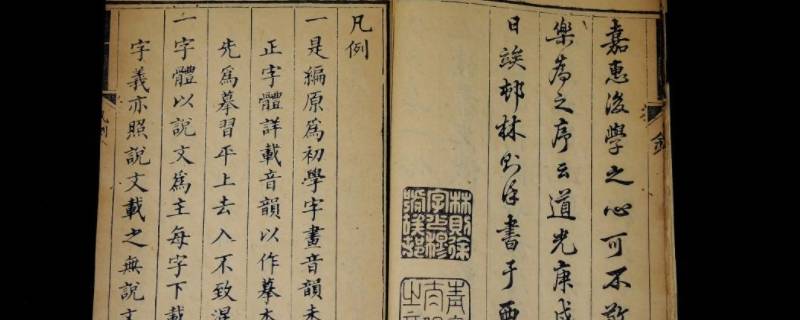 嘉惠後學之心可不敬
樂為之序云道光庚戌
日竢邨林則徐書于西
林則徐
字少穆
號竢邨
凡例
一是編原為初學字畫音韻未
正字體詳載音韻以作摹本
先為摹習平上去入不致混
一字體以說文為主每字下載
字義亦照說文載之無說文